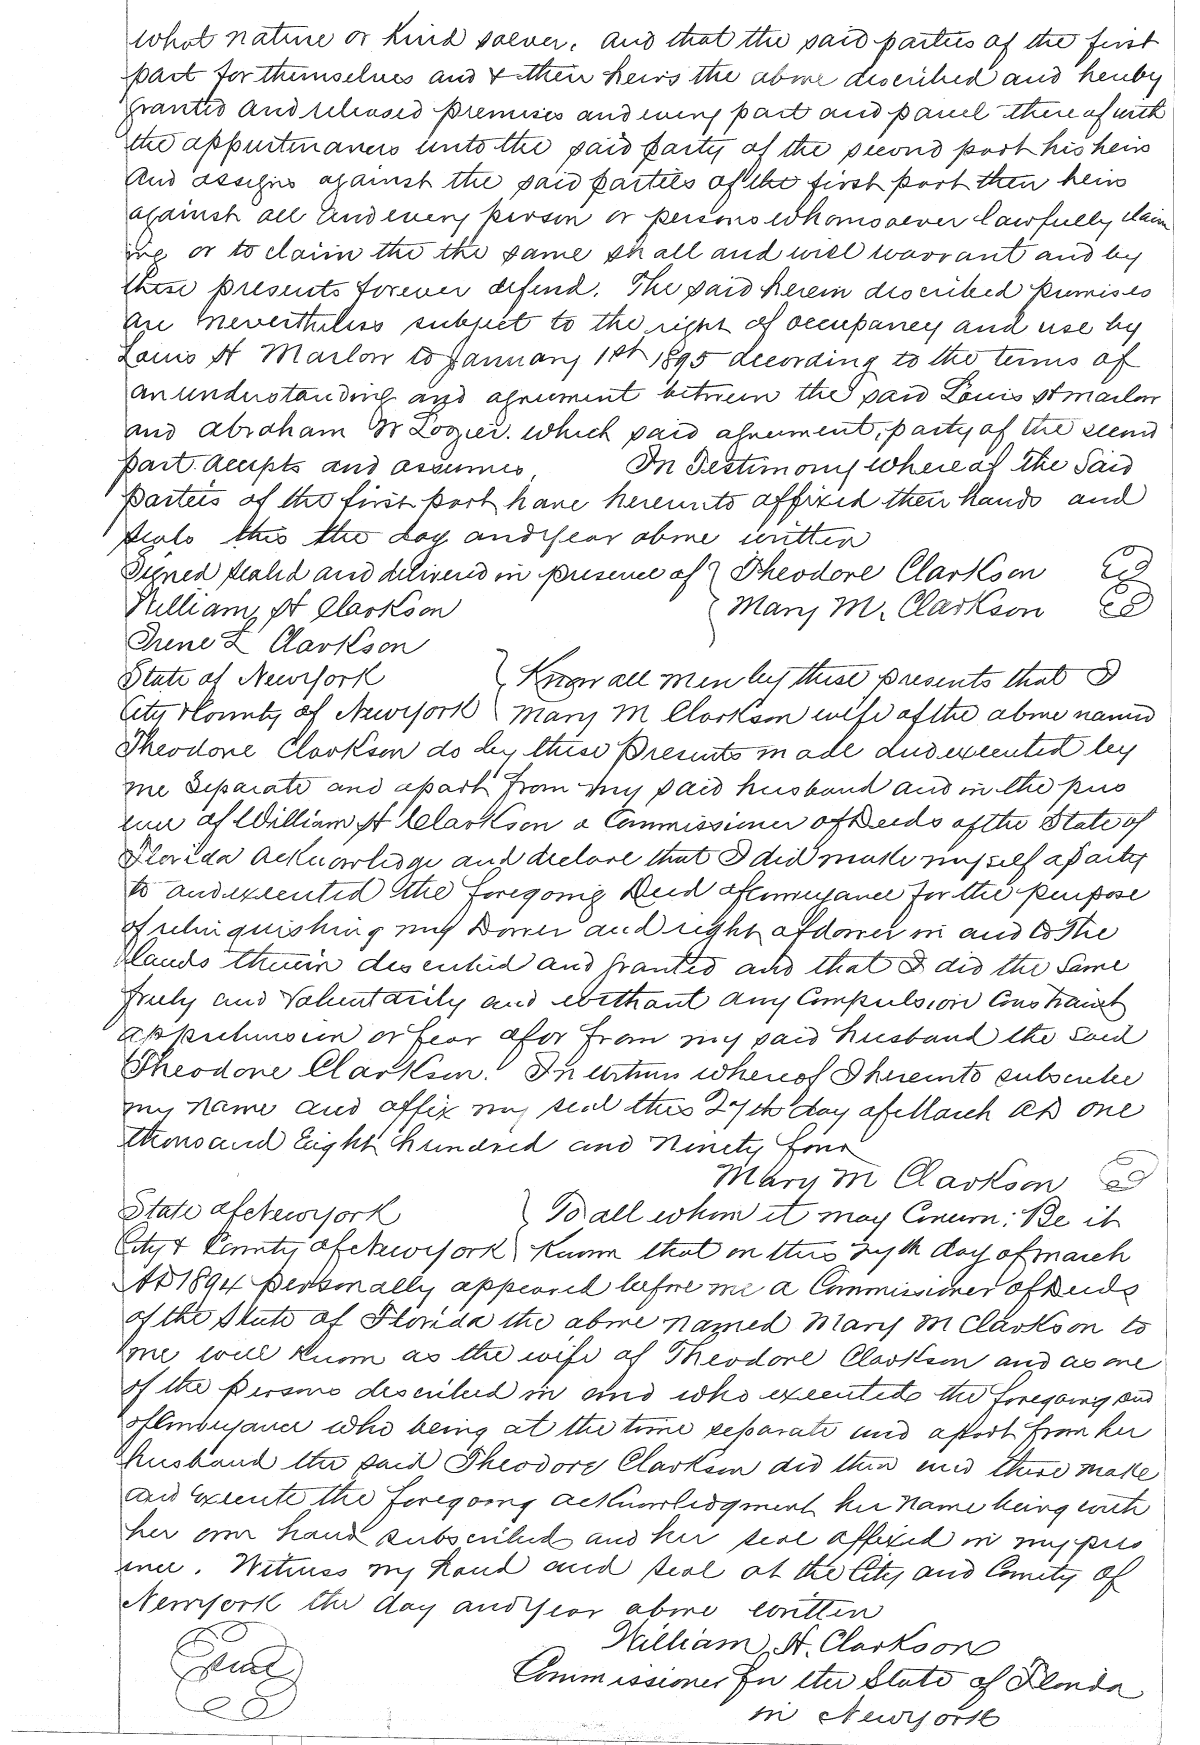 what nature or kind soever. And that the said parties of the first
part for themselves and & their heirs the above described and hereby
granted and released premises and every part and parcel thereof with
the appurtinances unto the said party of the second part his heirs
And assigns against the said parties of the first part their heirs
against all And every person or persons whomsoever lawfully claim
ing or to claim the the same shall and will warrant and by
these presents forever defend. The said herein described premises
are nevertheless subject to the right of occupancy and use by
Louis H Marlow to January 1st 1895 according to the terms of
an understanding and agreement between the said Louis H Marlow
and Abraham W Lozier. which said agreement, party of the second
part accepts and assumes, In Testimony whereof The Said
parties of the first part have hereunto affixed their hands and
seals this the day and year above written
Signed sealed and delivered in presence of } Theodore Clarkson
William H Clarkson } Mary M. Clarkson
Irene L Clarkson
State of New York } Know all men by these presents that I
City & County of New York } Mary M Clarkson wife of the above named
Theodore Clarkson do by these Presents made and executed by
me Separate and apart from my said husband and in the pres
ence of William H Clarkson a Commissioner of Deeds of the State of
Florida Acknowledge and declare that I did make myself a party
to and executed the foregoing Deed of Conveyance for the purpose
of relinquishing my Dower and right of dower in and to The
lands therein described and granted and that I did the Same
freely and Voluntarily and without any Compulsion Constraint
apprehension or fear of or from my said husband the said
Theodore Clarkson. In witness whereof I hereunto subscribe
my name and affix my seal this 27th day of March AD one
thousand Eight hundred and Ninety four
Mary M Clarkson
State of New York } To all whom it may Concern: Be it
City & County of New York } Known that on this 27th day of March
AD 1894 personally appeared before me a Commissioner of Deeds
of the State of Florida the above named Mary M Clarkson to
me well known as the wife of Theodore Clarkson and as one
of the persons described in and who executed the foregoing
of Conveyance who being at the time separate and apart from her
husband the said Theodore Clarkson did then and there make
and Execute the foregoing acknowledgment her name being with
her own hand subscribed and her seal affixed in my pres
ence. Witness my hand and seal at the City and County of
New York the day and year above written
William H. Clarkson
Seal Commissioner for the State of Florida
in New York